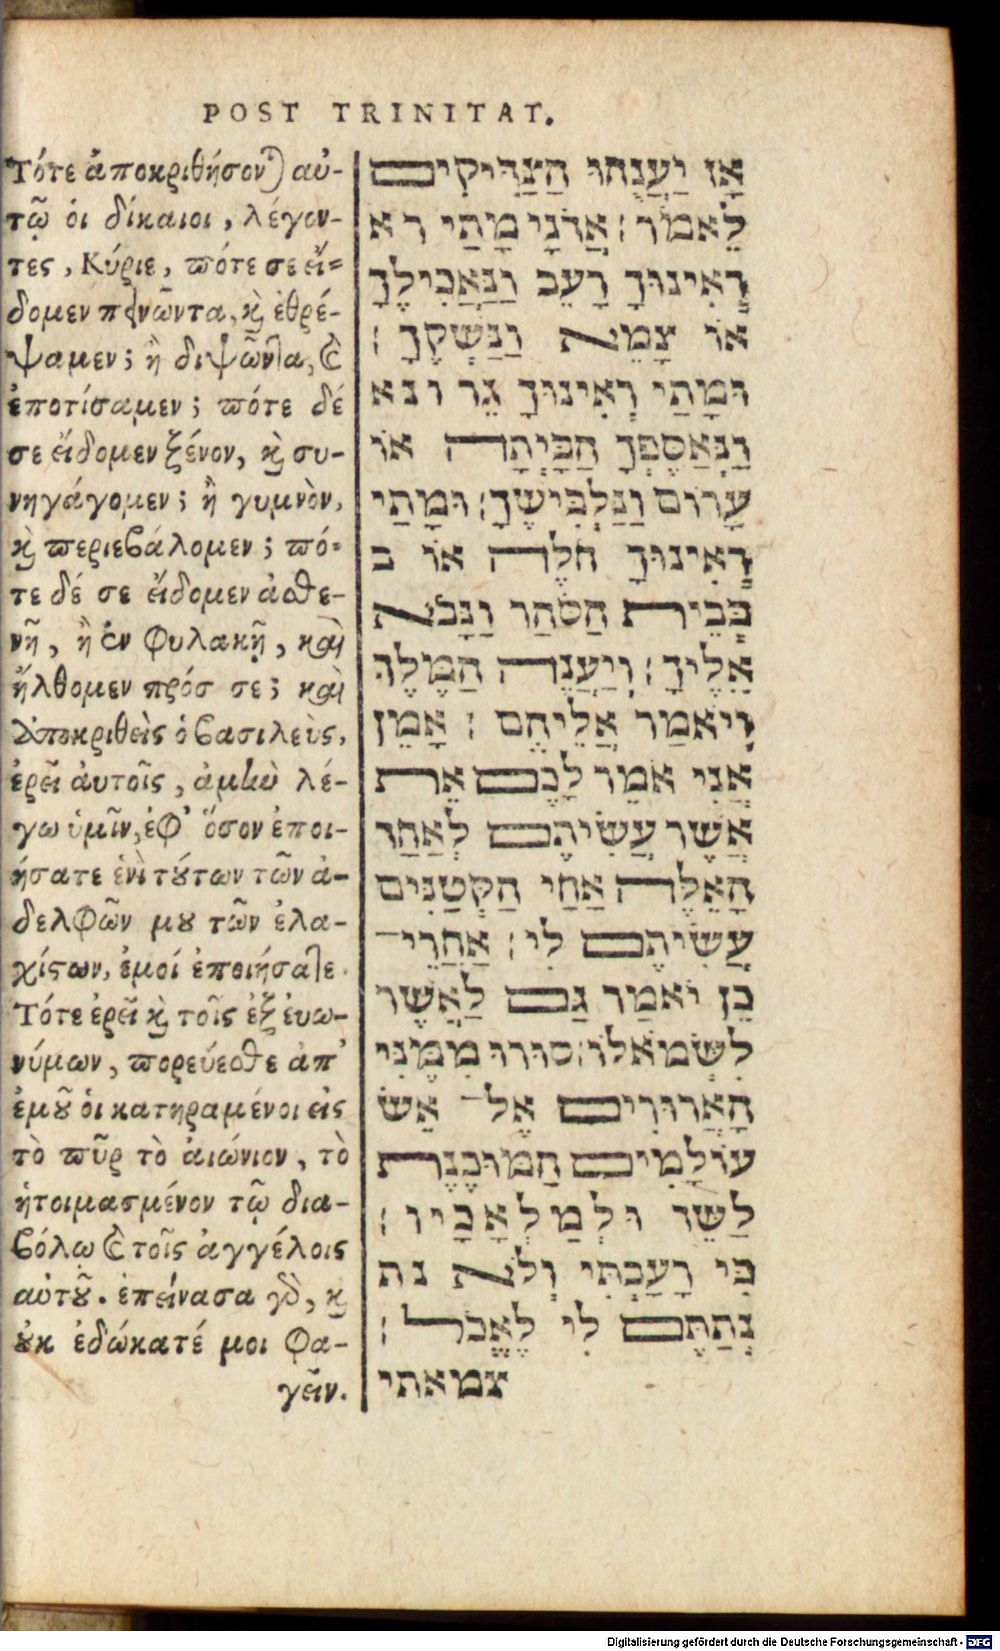 POST TRINITAT.
Τότε ἀποκριθήσονται αὐ-
τῷ οἱ δίκαιοι, λέγον-
τες, Κύριε, πότε σε εἴ-
δομεν πεινῶντα, καὶ ἐθρέ-
ψαμεν; ἢ διψῶντα, καὶ
ἐποτίσαμεν; πότε δέ
σε εἴδομεν ξένον, καὶ συ-
νηγάγομεν; ἢ γυμνὸν,
καὶ περιεβάλομεν; πό-
τε δέ σε εἴδομεν ἀσθε-
νῆ, ἢ ἐν φυλακῇ, καὶ
ἤλθομεν πρός σε; καὶ
ἀποκριθεὶς ὁ βασιλεὺς,
ἐρεῖ αὐτοῖς, ἀμὴν λέ-
γω ὑμῖν, ἐφ' ὅσον ἐποι-
ήσατε ἑνὶ τούτων τῶν ἀ-
δελφῶν μου τῶν ἐλα-
χίστων, ἐμοί ἐποιήσατε.
Τότε ἐρεῖ καὶ τοῖς ἐξ εὐω-
νύμων, πορεύεσθε ἀπ'
ἐμοῦ οἱ κατηραμένοι εἰς
τὸ πῦρ τὸ αἰώνιον, τὸ
ἡτοιμασμένον τῷ δια-
βόλῳ καὶ τοῖς ἀγγέλοις
αὐτοῦ. ἐπείνασα γὰρ, καὶ
οὐκ ἐδώκατέ μοι φα-
γεῖν.
אָז יַעֲנֻהוּ הַצַּדִּיקִים
לֵאמֹר׃ אֲדֹנָי מָתַי ר א
רְאִינוּךָ רָעֵב וַנַּאֲכִילֶךָ
אוֹ צָמֵא וַנַּשְׁקֶךָ׃
וּמָתַי רְאִינוּךָ גֵר ו נ א
וַנְּאַסֶפְךָ הַבָּיְתָה אוֹ
עָרוֹם וַנַּלְבִּישֶׁךָ׃ וּמָתַי
רְאִינוּךָ חֹלֶה אוֹ ב
בְּבֵית הַסֹּהַר וַנָּבֹא
אֵלֶיךָ׃ וְיַעֲנֶה הַמֶּלֶךְ
וְיֹאמַר אֲלֵיהֶם׃ אָמֵן
אֲנִי אֹמֵר לָכֶם אֵת
אֲשֶׁר עֲשִׂיתֶם לְאַחַד
הָאֵלֶּה אַחַי הַקְּטַנִּים
עֲשִׂיתֶם לִי׃ אַחֲרֵי־
כֵן יֹאמַר גַּם לַאֲשֶׁר
לִשְׂמֹאלוֹ׃ סוּרוּ מִמֶּנִּי
הָאֲרוּרִים אֶל־ אֵשׁ
עוֹלָמִים הַמּוּכֶנֶת
לַשֵּׁד וּלְמַלְאָכָיו׃
כִּי רָעַבְתִּי וְלֹא נ ת
נְתַתֶּם לִי לֶאֱכֹל׃
צמאתי
Digitalisierung gefördert durch die Deutsche Forschungsgemeinschaft - DFG